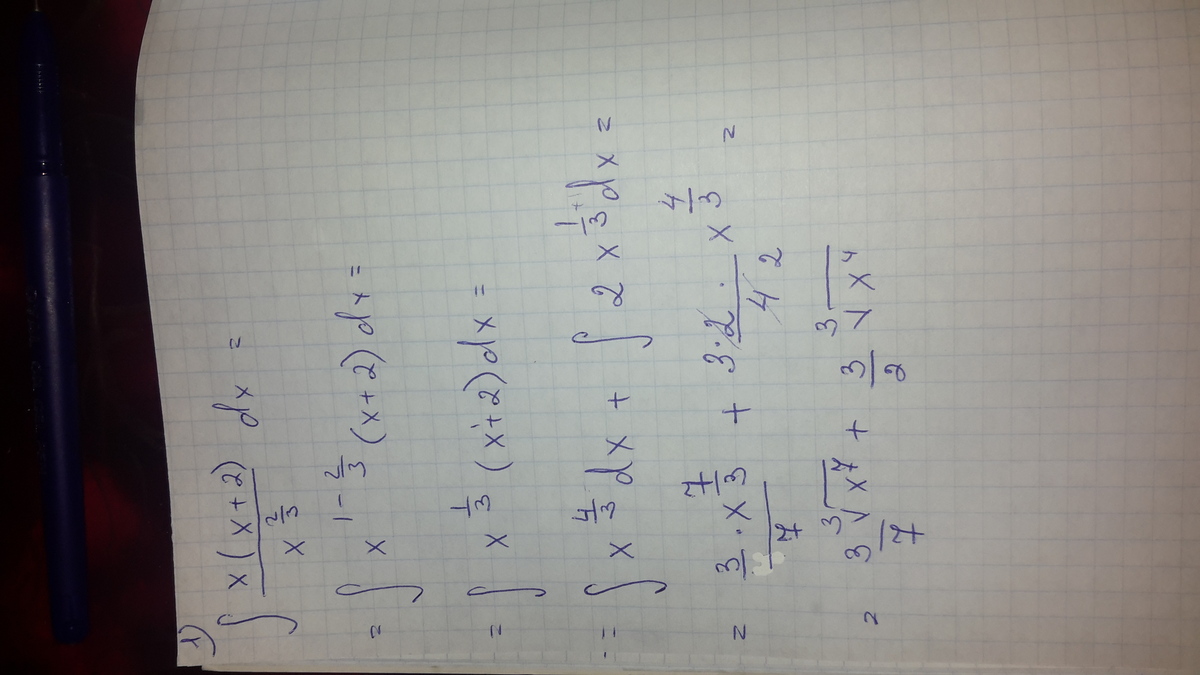 1) ∫ x(x+2)/x^(2/3) dx =
= ∫ x^(1-2/3) (x+2) dx =
= ∫ x^(1/3) (x+2) dx =
= ∫ x^(4/3) dx + ∫ 2 x^(1/3 +1) dx =
= 3/7 · x^(7/3) + 3·2/4 · x^(4/3) =
= 3 ∛x^7 / 7 + 3/2 ∛x^4